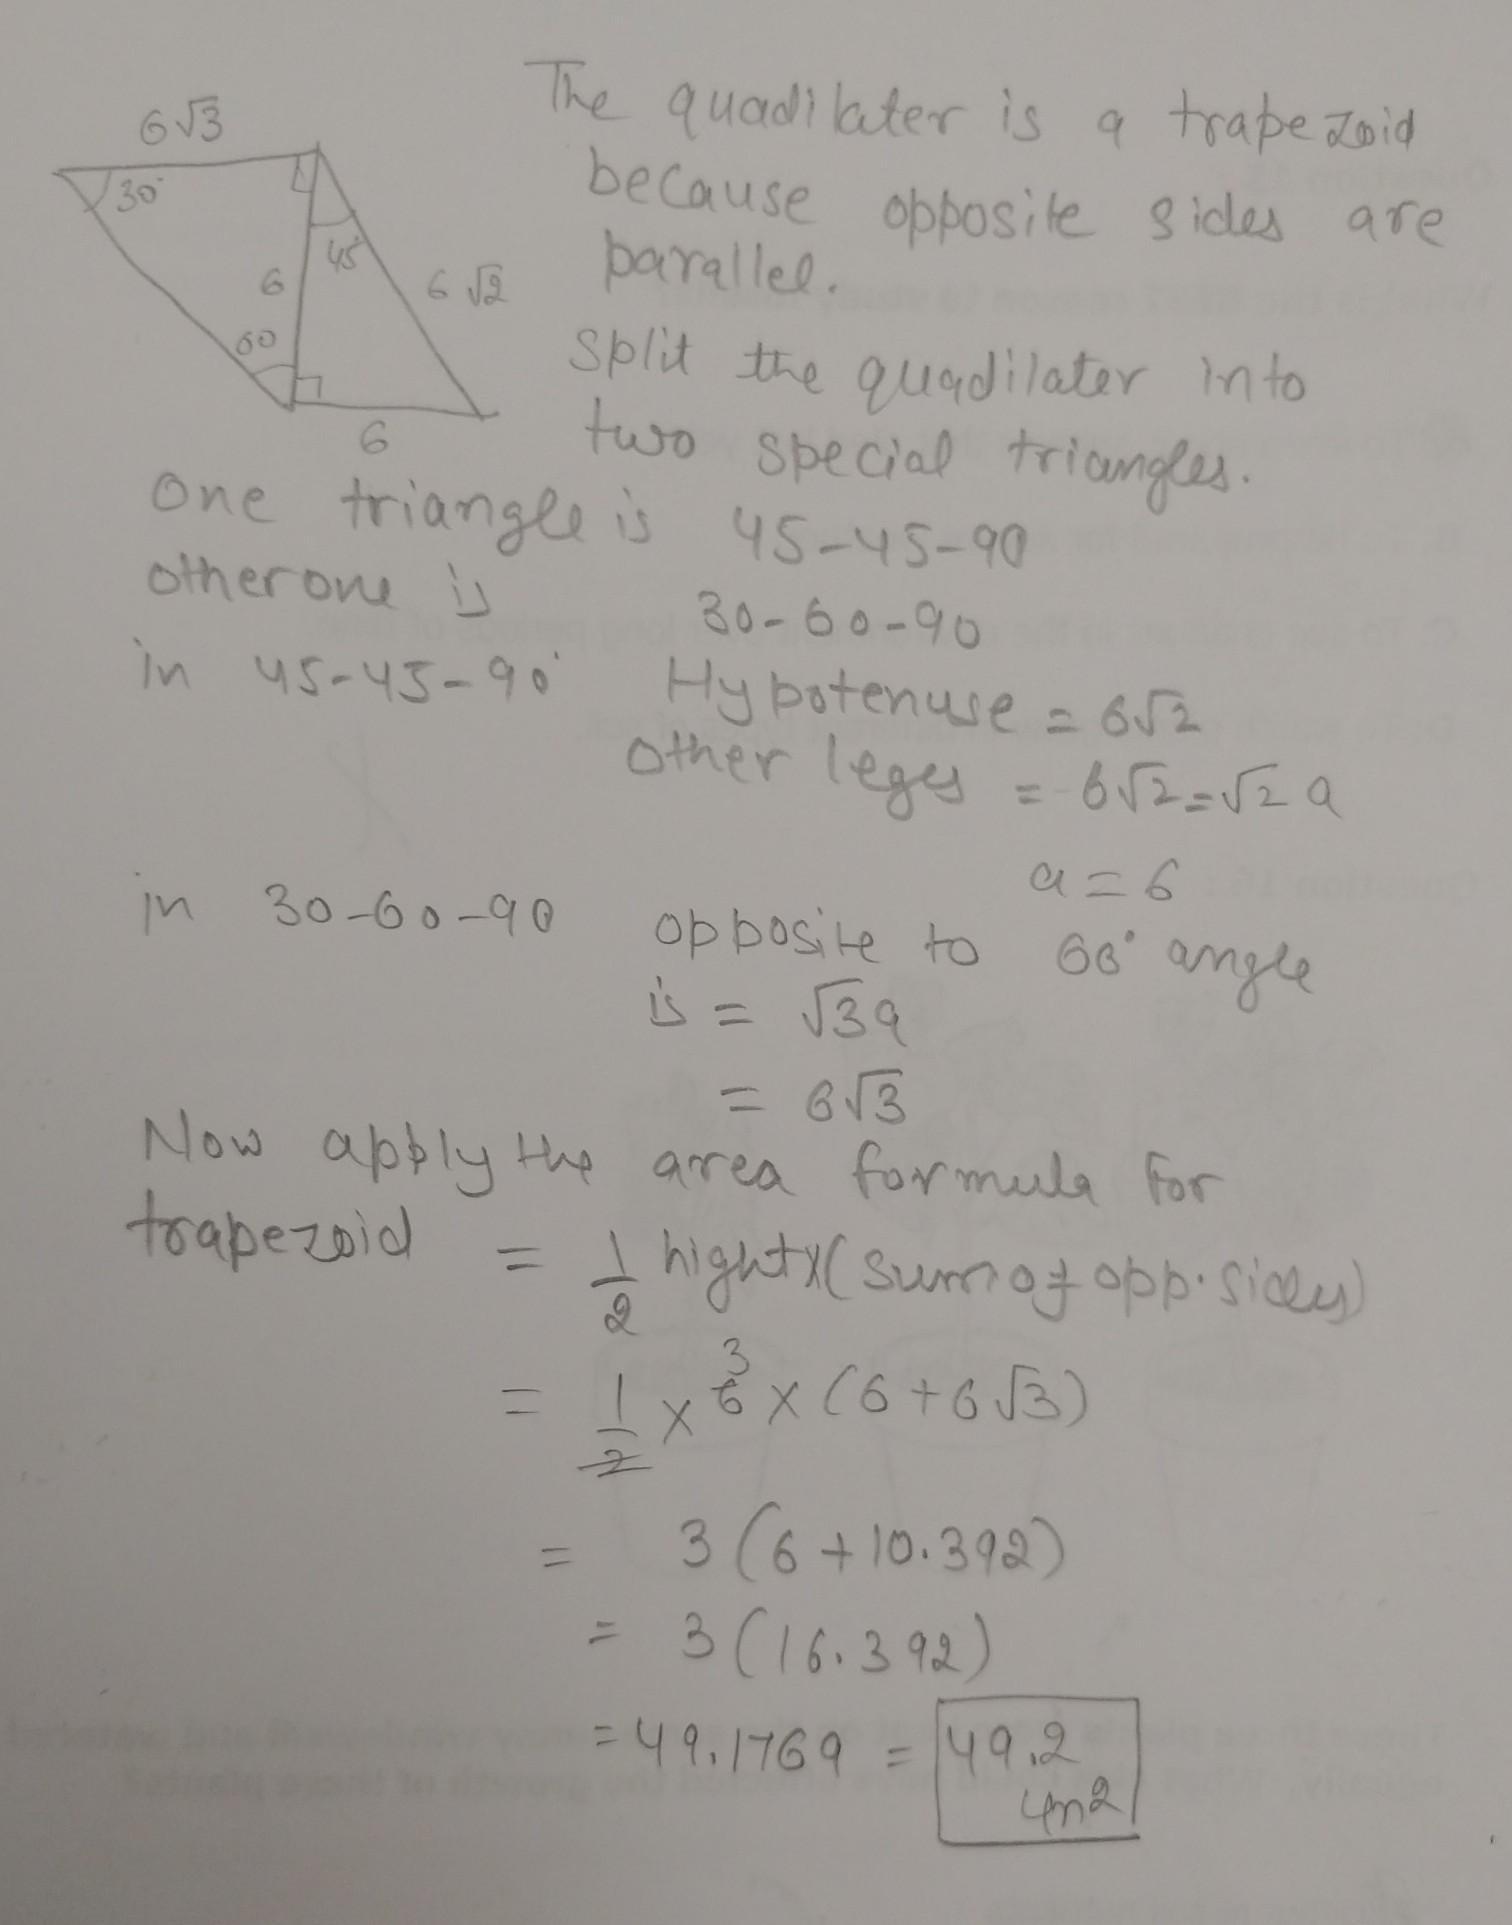 6√3
The quadilater is a trapezoid
because opposite sides are
parallel.
30°
45
6
6√2
60
6
split the quadilater into
two special triangles.
One triangle is 45-45-90
other one is 30-60-90
in 45-45-90° Hypotenuse = 6√2
other leges = 6√2=√2 a
a = 6
in 30-60-90 opposite to 60° angle
is = √3a
= 6√3
Now apply the area formula for
trapezoid = 1/2 hight×(sum of opp. sides)
3
= 1/2 × 6 × (6+6√3)
= 3(6+10.392)
= 3(16.392)
= 49.1769 = 49.2